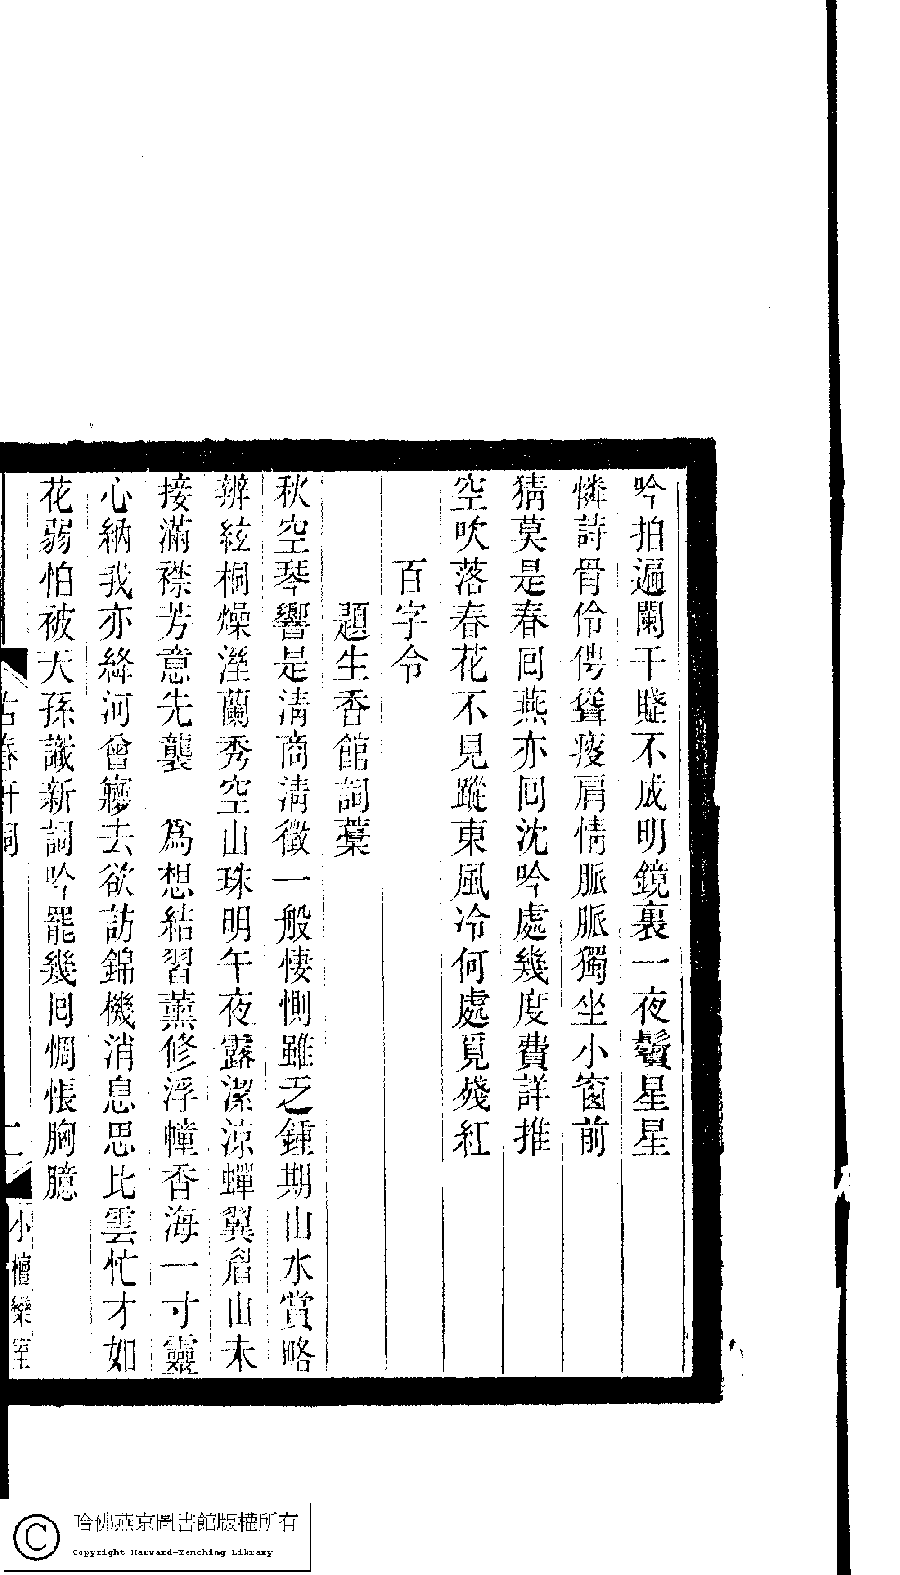 吟拍遍闌干睫不成明鏡裏一夜鬢星星
憐詩骨伶俜聳瘦肩情脈脈獨坐小窗前
猜莫是春回燕亦回沈吟處幾度費詳推
空吹落春花不見蹤東風冷何處覓殘紅
百字令
題生香館詞葉
秋空琴響是淸商淸徵一般悽惻雖乏鍾期山水賞略
辨絃桐燥溼蘭秀空山珠明午夜露潔涼蟬翼眉山未
接滿襟芳意先襲 爲想結習薰修浮幢香海一寸靈
心納我亦絳河曾寱去欲訪錦機消息思比雲忙才如
花弱怕被天孫譏新詞吟罷幾回惆悵胸臆
古春軒詞
二
小檀欒室
哈佛燕京圖書館版權所有
Copyright Harvard-Yenching Library